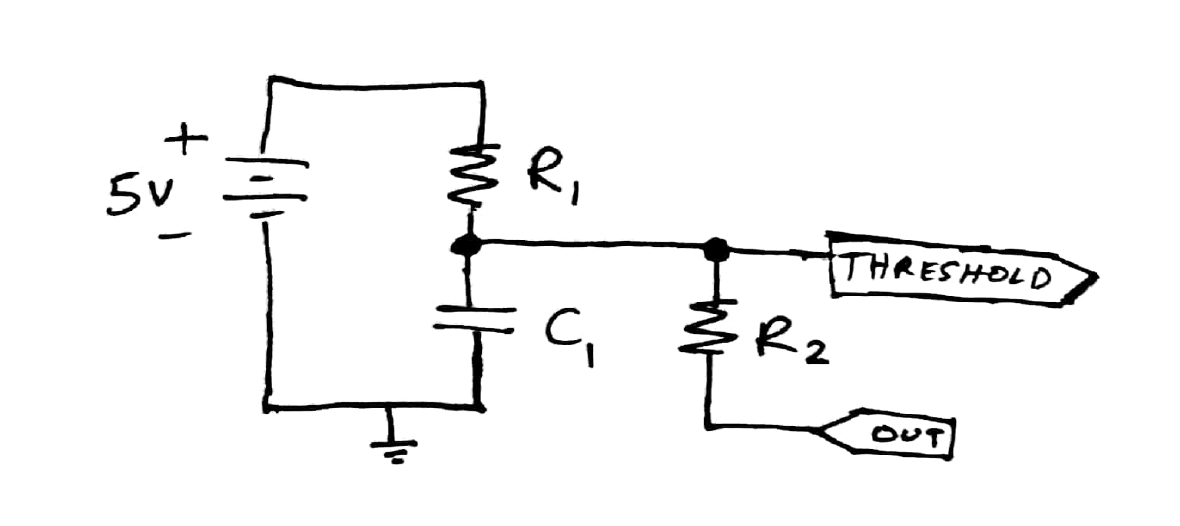 +
5V
−
R₁
C₁
THRESHOLD
R₂
OUT